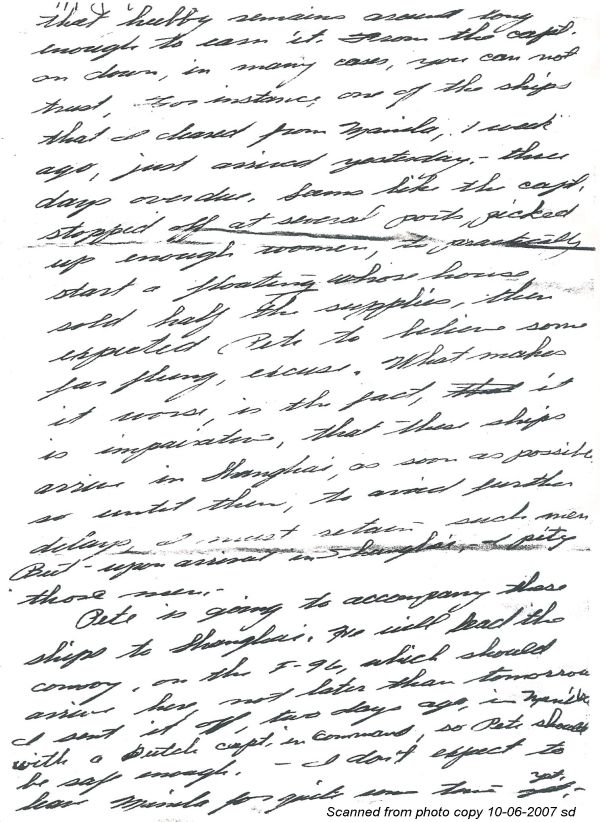 that hubby remains around long
enough to earn it. From the capt.
on down, in many cases, you can not
trust, For instance, one of the ships
that I cleared from Manila, 1 week
ago, just arrived yesterday - three
days overdue. Seems like the capt.
stopped off at several ports, picked
up enough women, to practically
start a floating whose house,
sold half the supplies, then
expected Pete to believe some
far flung, excuse. What makes
it worse, is the fact, that it
is impairative, that these ships
arrive in Shanghai, as soon as possible
so until then, to avoid further
delays, I must retain such men
But - upon arrival in Shanghai I pity
those men.-
Pete is going to accompany these
ships to Shanghai. He will lead the
convoy, on the F-96, which should
arrive here, not later than tomorrow
I sent it off, two days ago, in Manila
with a Dutch capt. in command, so Pete should
be safe enough. - I don't expect to
leave Manila for quite some time yet.-
Scanned from photo copy 10-06-2007 sd